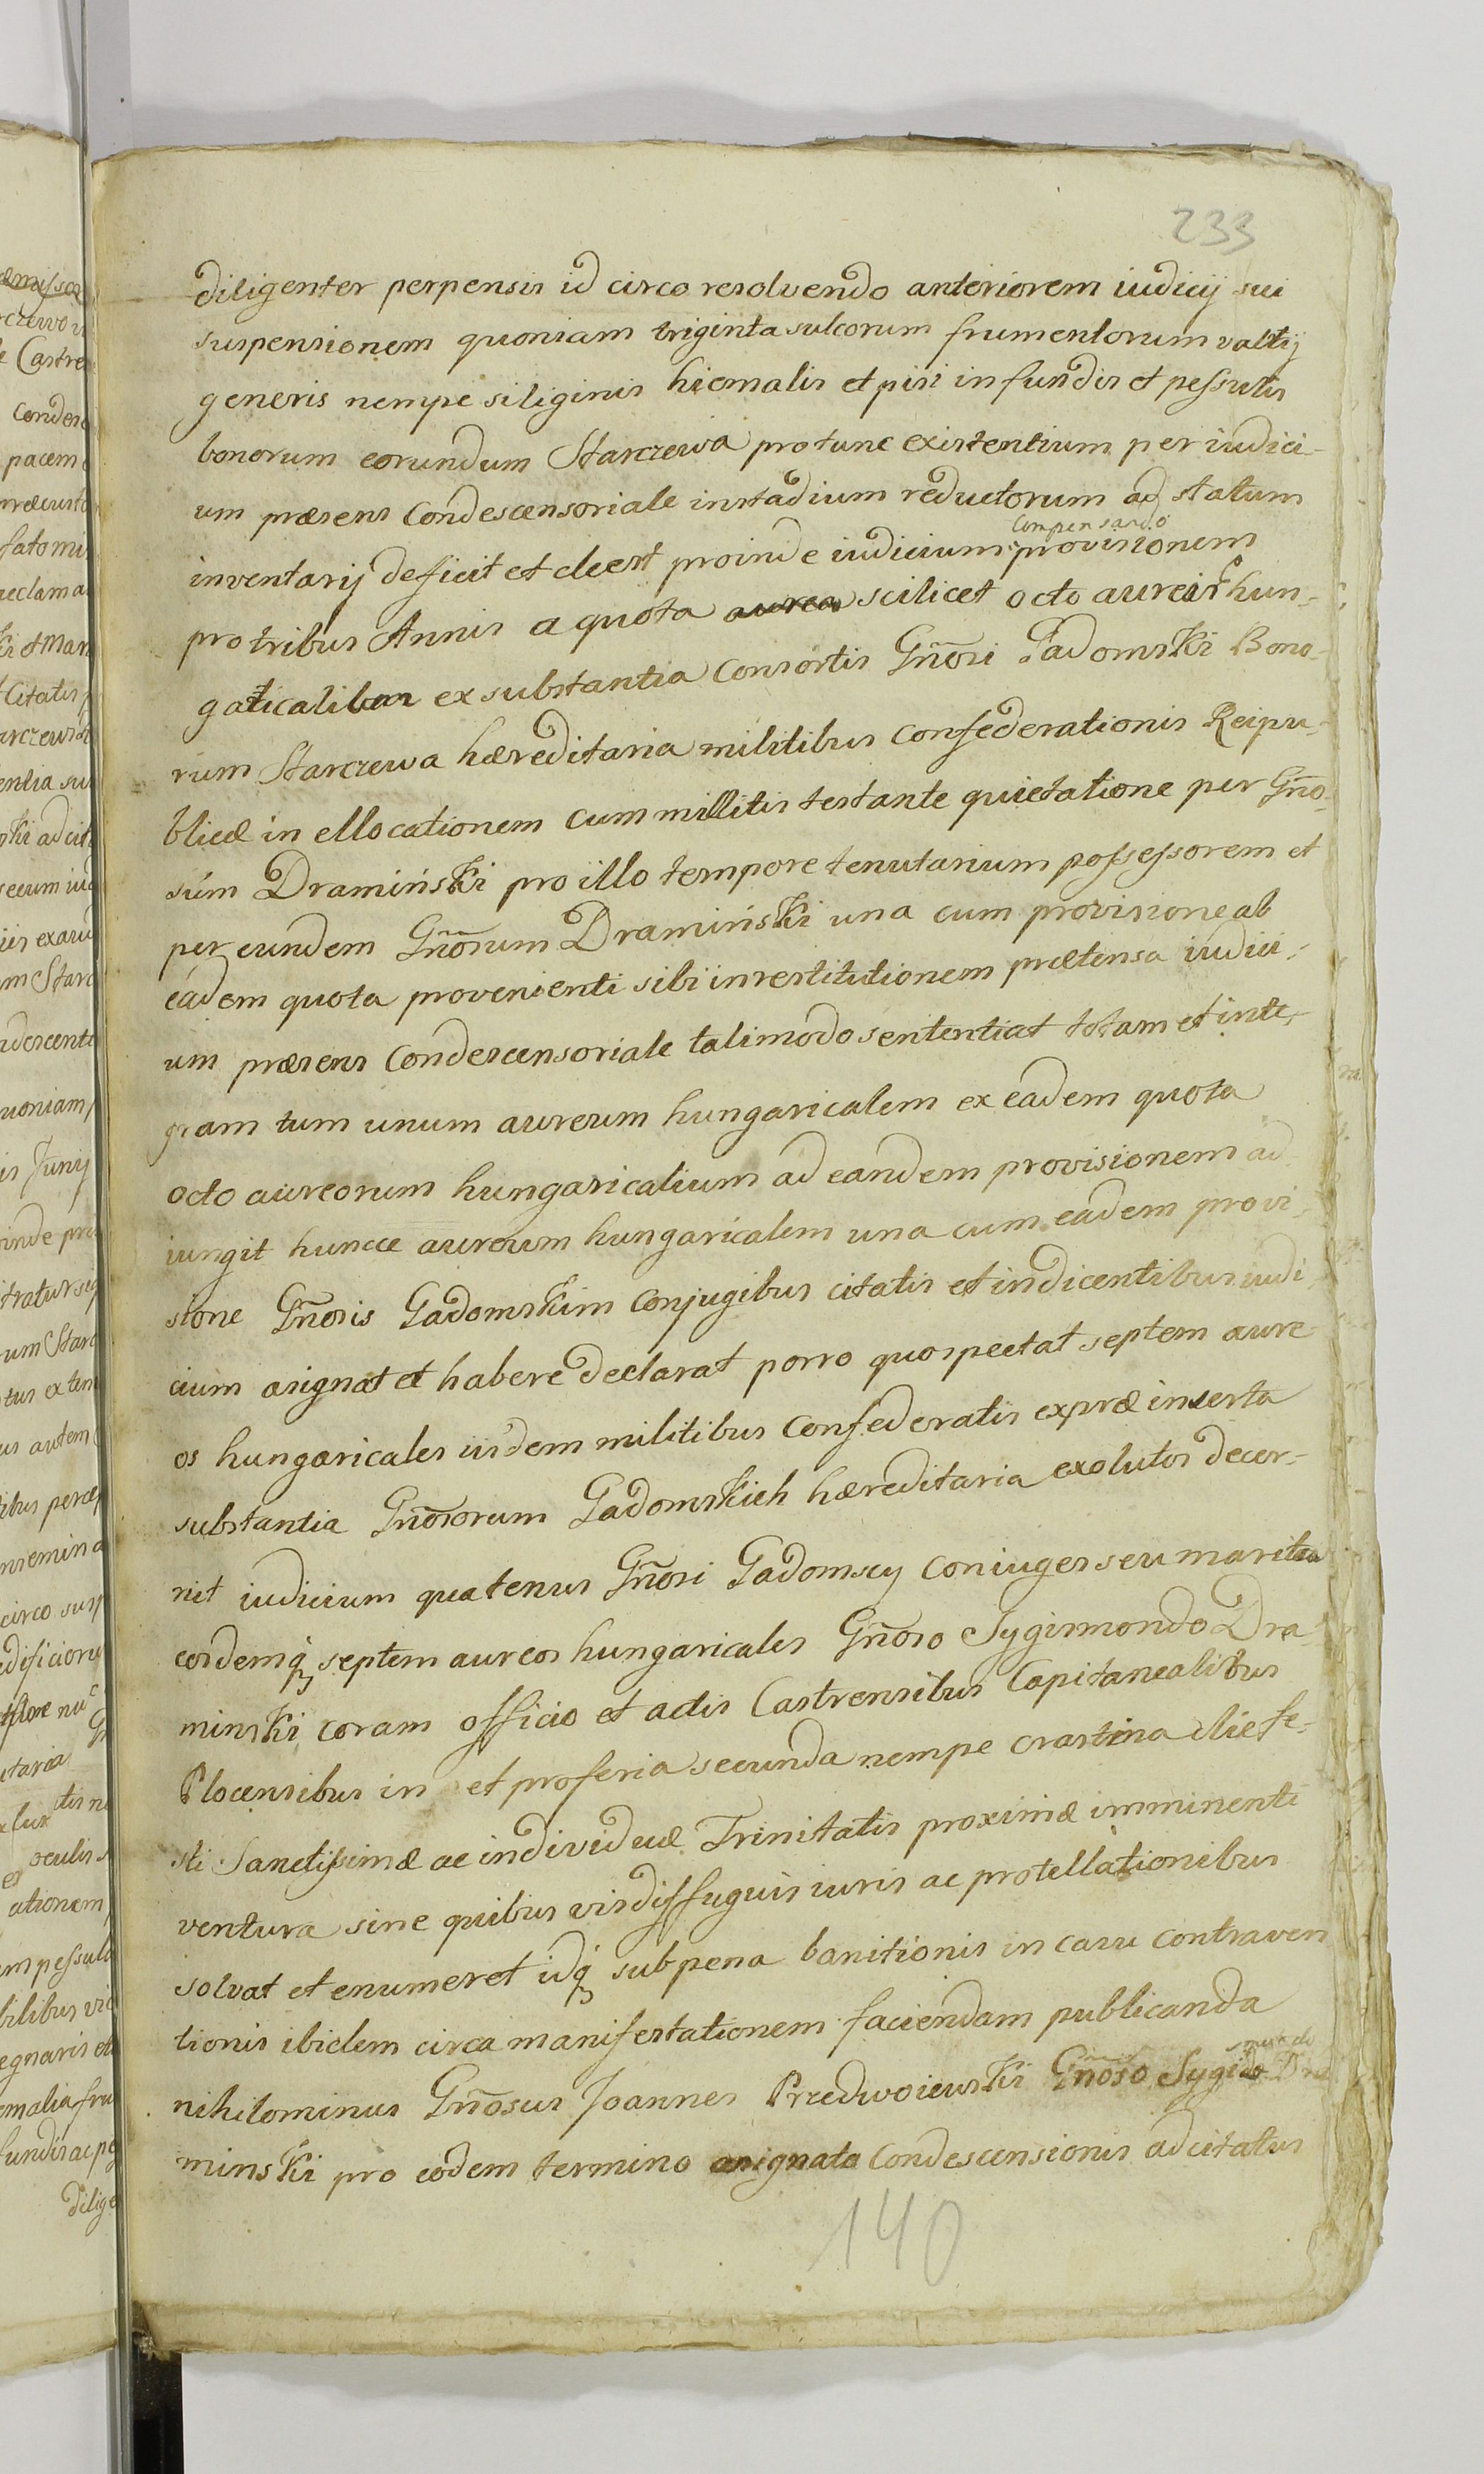 233
diligenter perpensis id circo resolvendo anteriorem iudicij sui
suspensionem quoniam triginta sulcorum frumentorum
generis nempe siliginis hiemalis et pisi in fundis et pessulis
bonorum eorundum Starczewa protunc existentium per iudici-
um præsens Condescensoriale instadium reductorum ad statum
inventarij deficit et deest proinde iudicium compensando provisionem
pro tribus Annis a quota scilicet octo aureis hun-
gaticalibus ex substantia Consortis Gñosi Gadomski Bono-
rum Starczewa hæreditaria militibus Confederationis Reipu-
blicæ in ellocationem cum millitis testante quietatione per Gño-
sum Draminski pro illo tempore tenutarium possessorem et
per eundem Gñosum Draminski una cum provisione ab
eadem quota provenienti sibi in restitutionem prætensa iudici-
um præsens Condescensoriale talimodo sententiat totam et inte-
gram tum unum aureum hungaricalem ex eadem quota
octo aureorum hungaricalium ad eandem provisionem ad
iungit huncce aureum hungaricalem una cum eadem provi-
sione Gñosis Gadomskim Conjugibus citatis et indicentibus iudi
cium asignat et habere declarat porro quospectat septem aure-
os hungaricales iisdem militibus Confederatis ex præinserta
substantia Gñosorum Gadomskich hæreditaria exolutos decer-
nit iudicium quatenus Gñosi Gadomscy Coniuges seu
eosdemq septem aureos hungaricales Gñoso Sygismondo Dra-
minski coram officio et actis Castrensibus Capitanealibus
Plocensibus in et pro feria secunda nempe crastina die fe-
sti Sanctissimæ ac individuæ Trinitatis proximæ imminenti
ventura sine quibusvis diffugiis iuris ac protellationibus
solvat et enumeret idq sub pena banitionis in casu contraven
tionis ibidem circa manifestationem faciendam publicanda
nihilominus Gñosus Joannes Przedwoiewski Gñoso Dra
minski pro eodem termino asignata Condescensionis adcitatus
140